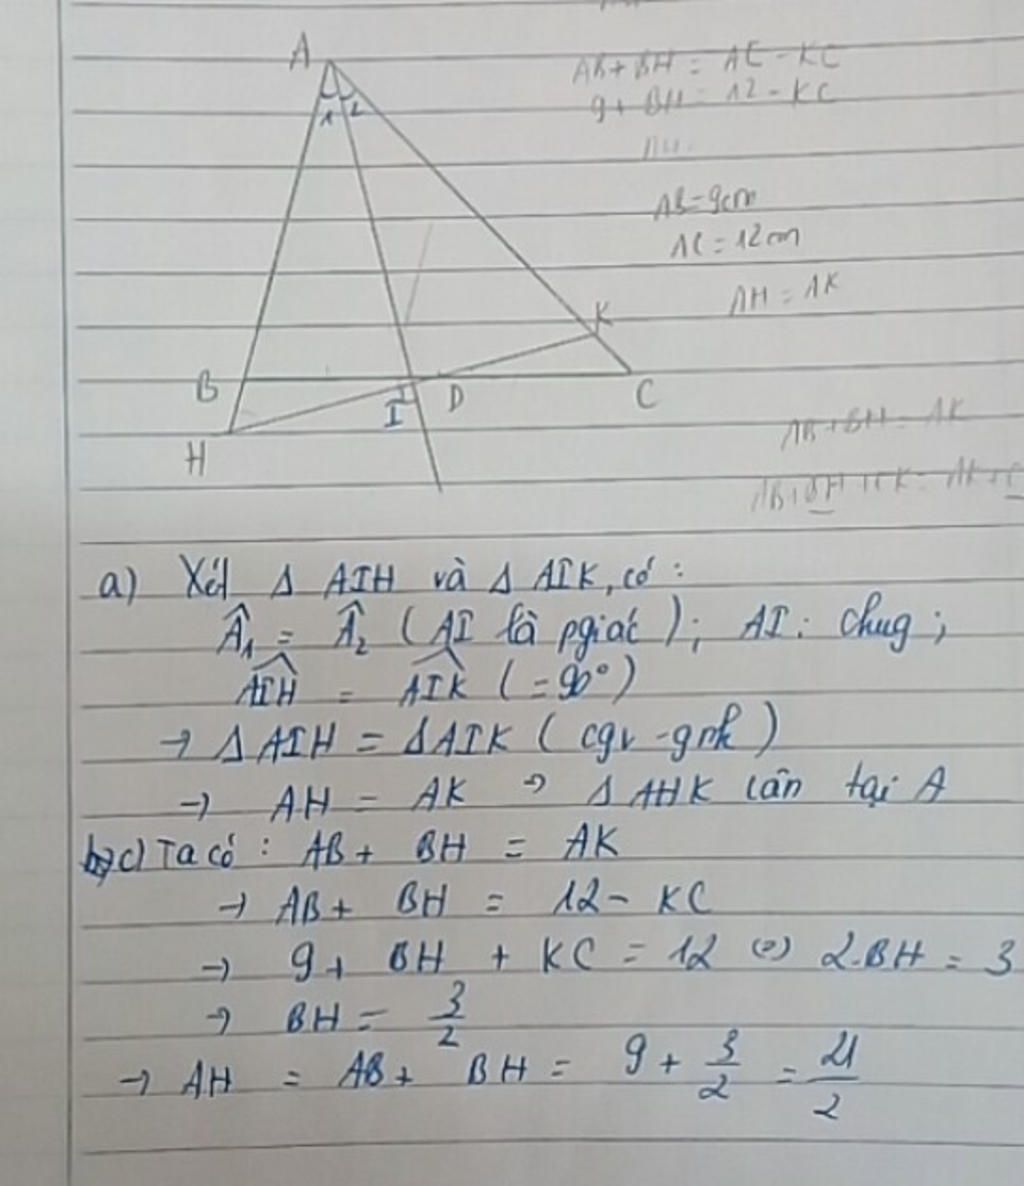 A
1 2
AB + BH = AC - KC
9 + BH = 12 - KC
AH =
AB = 9cm
AC = 12cm
AH = AK
K
B
I
D
C
H
AB + BH = AK
AB + BH + CK = AK + C
a) Xét Δ AIH và Δ AIK, có :
Â₁ = Â₂ ( AI là pgiác ) ; AI : chug ;
AIH = AIK ( = 90° )
→ Δ AIH = Δ AIK ( cgv - gnk )
→ AH = AK → Δ AHK cân tại A
c) Ta có : AB + BH = AK
→ AB + BH = 12 - KC
→ 9 + BH + KC = 12 (=) 2.BH = 3
→ BH = 3/2
→ AH = AB + BH = 9 + 3/2 = 21/2